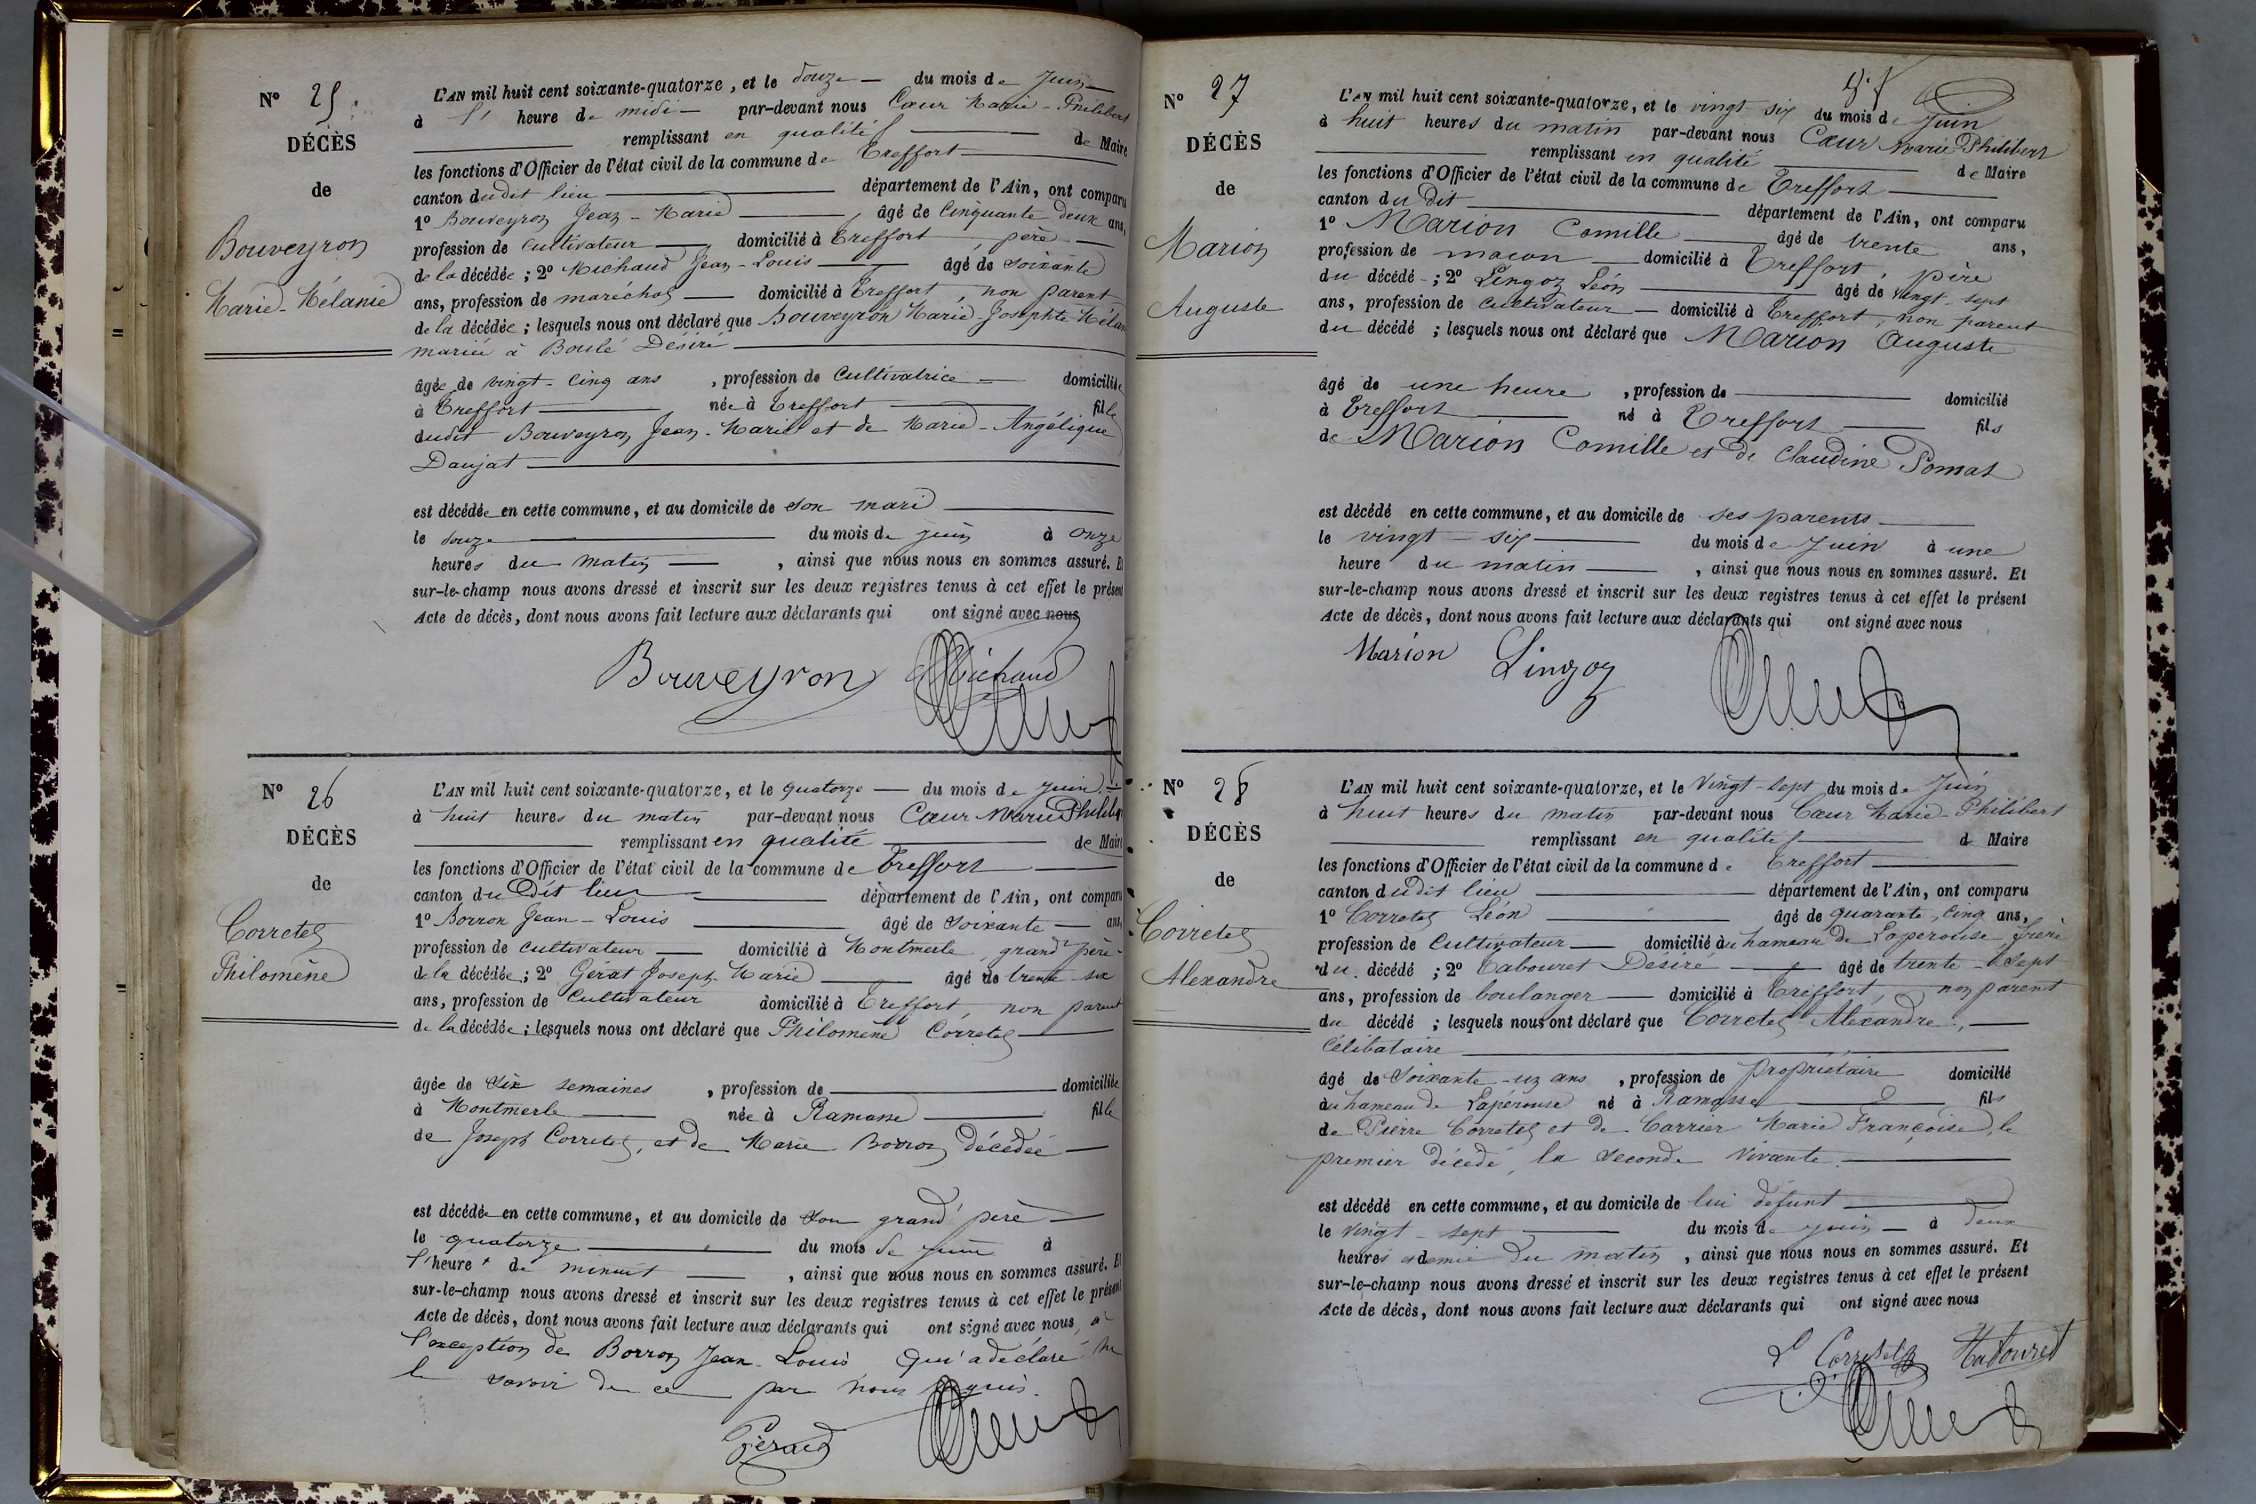 N° 25.
DÉCÈS
de
Bouveyron
Marie-Mélanie
L'AN mil huit cent soixante-quatorze, et le douze du mois de Juin
à l' heure de midi par-devant nous Cœur Marie-Philibert
remplissant en qualité de Maire
les fonctions d'Officier de l'état civil de la commune de Treffort
canton dudit lieu département de l'Ain, ont comparu
1° Bouveyron Jean-Marie, âgé de Cinquante deux ans,
profession de cultivateur domicilié à Treffort, père
de la décédée; 2° Michaud Jean-Louis âgé de soixante
ans, profession de maréchal domicilié à Treffort, non parent
de la décédée; lesquels nous ont déclaré que Bouveyron Marie-Josephte Mélanie
mariée à Boulé Désiré
âgée de vingt-cinq ans, profession de Cultivatrice domiciliée
à Treffort née à Treffort fille
dudit Bouveyron Jean-Marie et de Marie-Angélique
Daujat
est décédée en cette commune, et au domicile de son mari
le douze du mois de juin à onze
heures du matin, ainsi que nous nous en sommes assuré. Et
sur-le-champ nous avons dressé et inscrit sur les deux registres tenus à cet effet le présent
Acte de décès, dont nous avons fait lecture aux déclarants qui ont signé avec nous
Bouveyron Michaud
N° 26
DÉCÈS
de
Corretel
Philomène
L'AN mil huit cent soixante-quatorze, et le quatorze du mois de juin
à huit heures du matin par-devant nous Cœur Marie Philibert
remplissant en qualité de Maire
les fonctions d'Officier de l'état civil de la commune de Treffort
canton du Dit lieu département de l'Ain, ont comparu
1° Borron Jean-Louis âgé de soixante ans,
profession de cultivateur domicilié à Montmerle, grand père
de la décédée; 2° Gérat Joseph-Marie âgé de trente-six
ans, profession de Cultivateur domicilié à Treffort, non parent
de la décédée; lesquels nous ont déclaré que Philomène Corretel
âgée de six semaines, profession de domiciliée
à Montmerle née à Ramasse fille
de Joseph Corretel, et de Marie Borron décédée
est décédée en cette commune, et au domicile de son grand'père
le quatorze du mois de juin à
l'heure de minuit, ainsi que nous nous en sommes assuré. Et
sur-le-champ nous avons dressé et inscrit sur les deux registres tenus à cet effet le présent
Acte de décès, dont nous avons fait lecture aux déclarants qui ont signé avec nous, à
l'exception de Borron Jean-Louis qui a déclaré ne
le savoir de ce par nous requis.
N° 27
DÉCÈS
de
Marion
Auguste
L'AN mil huit cent soixante-quatorze, et le vingt-six du mois de Juin
à huit heures du matin par-devant nous Cœur Marie Philibert
remplissant en qualité de Maire
les fonctions d'Officier de l'état civil de la commune de Treffort
canton du Dit département de l'Ain, ont comparu
1° Marion Comille âgé de trente ans,
profession de maçon domicilié à Treffort, père
du décédé; 2° Lingoz Léon âgé de vingt-sept
ans, profession de cultivateur domicilié à Treffort, non parent
du décédé; lesquels nous ont déclaré que Marion Auguste
âgé de une heure, profession de domicilié
à Treffort né à Treffort fils
de Marion Comille et de Claudine Pomat
est décédé en cette commune, et au domicile de ses parents
le vingt-six du mois de Juin à une
heure du matin, ainsi que nous nous en sommes assuré. Et
sur-le-champ nous avons dressé et inscrit sur les deux registres tenus à cet effet le présent
Acte de décès, dont nous avons fait lecture aux déclarants qui ont signé avec nous
Marion Lingoz
N° 28
DÉCÈS
de
Corretel
Alexandre
L'AN mil huit cent soixante-quatorze, et le Vingt-sept du mois de Juin
à huit heures du matin par-devant nous Cœur Marie-Philibert
remplissant en qualité de Maire
les fonctions d'Officier de l'état civil de la commune de Treffort
canton dudit lieu département de l'Ain, ont comparu
1° Corretel Léon âgé de quarante-cinq ans,
profession de Cultivateur domicilié au hameau de Lapérouse frère
du décédé; 2° Tabouret Désiré âgé de trente-sept
ans, profession de boulanger domicilié à Treffort, non parent
du décédé; lesquels nous ont déclaré que Corretel Alexandre,
Célibataire
âgé de Soixante-un ans, profession de propriétaire domicilié
au hameau de Lapérouse né à Ramasse fils
de Pierre Corretel et de Carrier Marie Françoise, le
premier décédé, la seconde vivante.
est décédé en cette commune, et au domicile de lui défunt
le vingt-sept du mois de juin à deux
heures et demie du matin, ainsi que nous nous en sommes assuré. Et
sur-le-champ nous avons dressé et inscrit sur les deux registres tenus à cet effet le présent
Acte de décès, dont nous avons fait lecture aux déclarants qui ont signé avec nous
L Corretel Tabouret